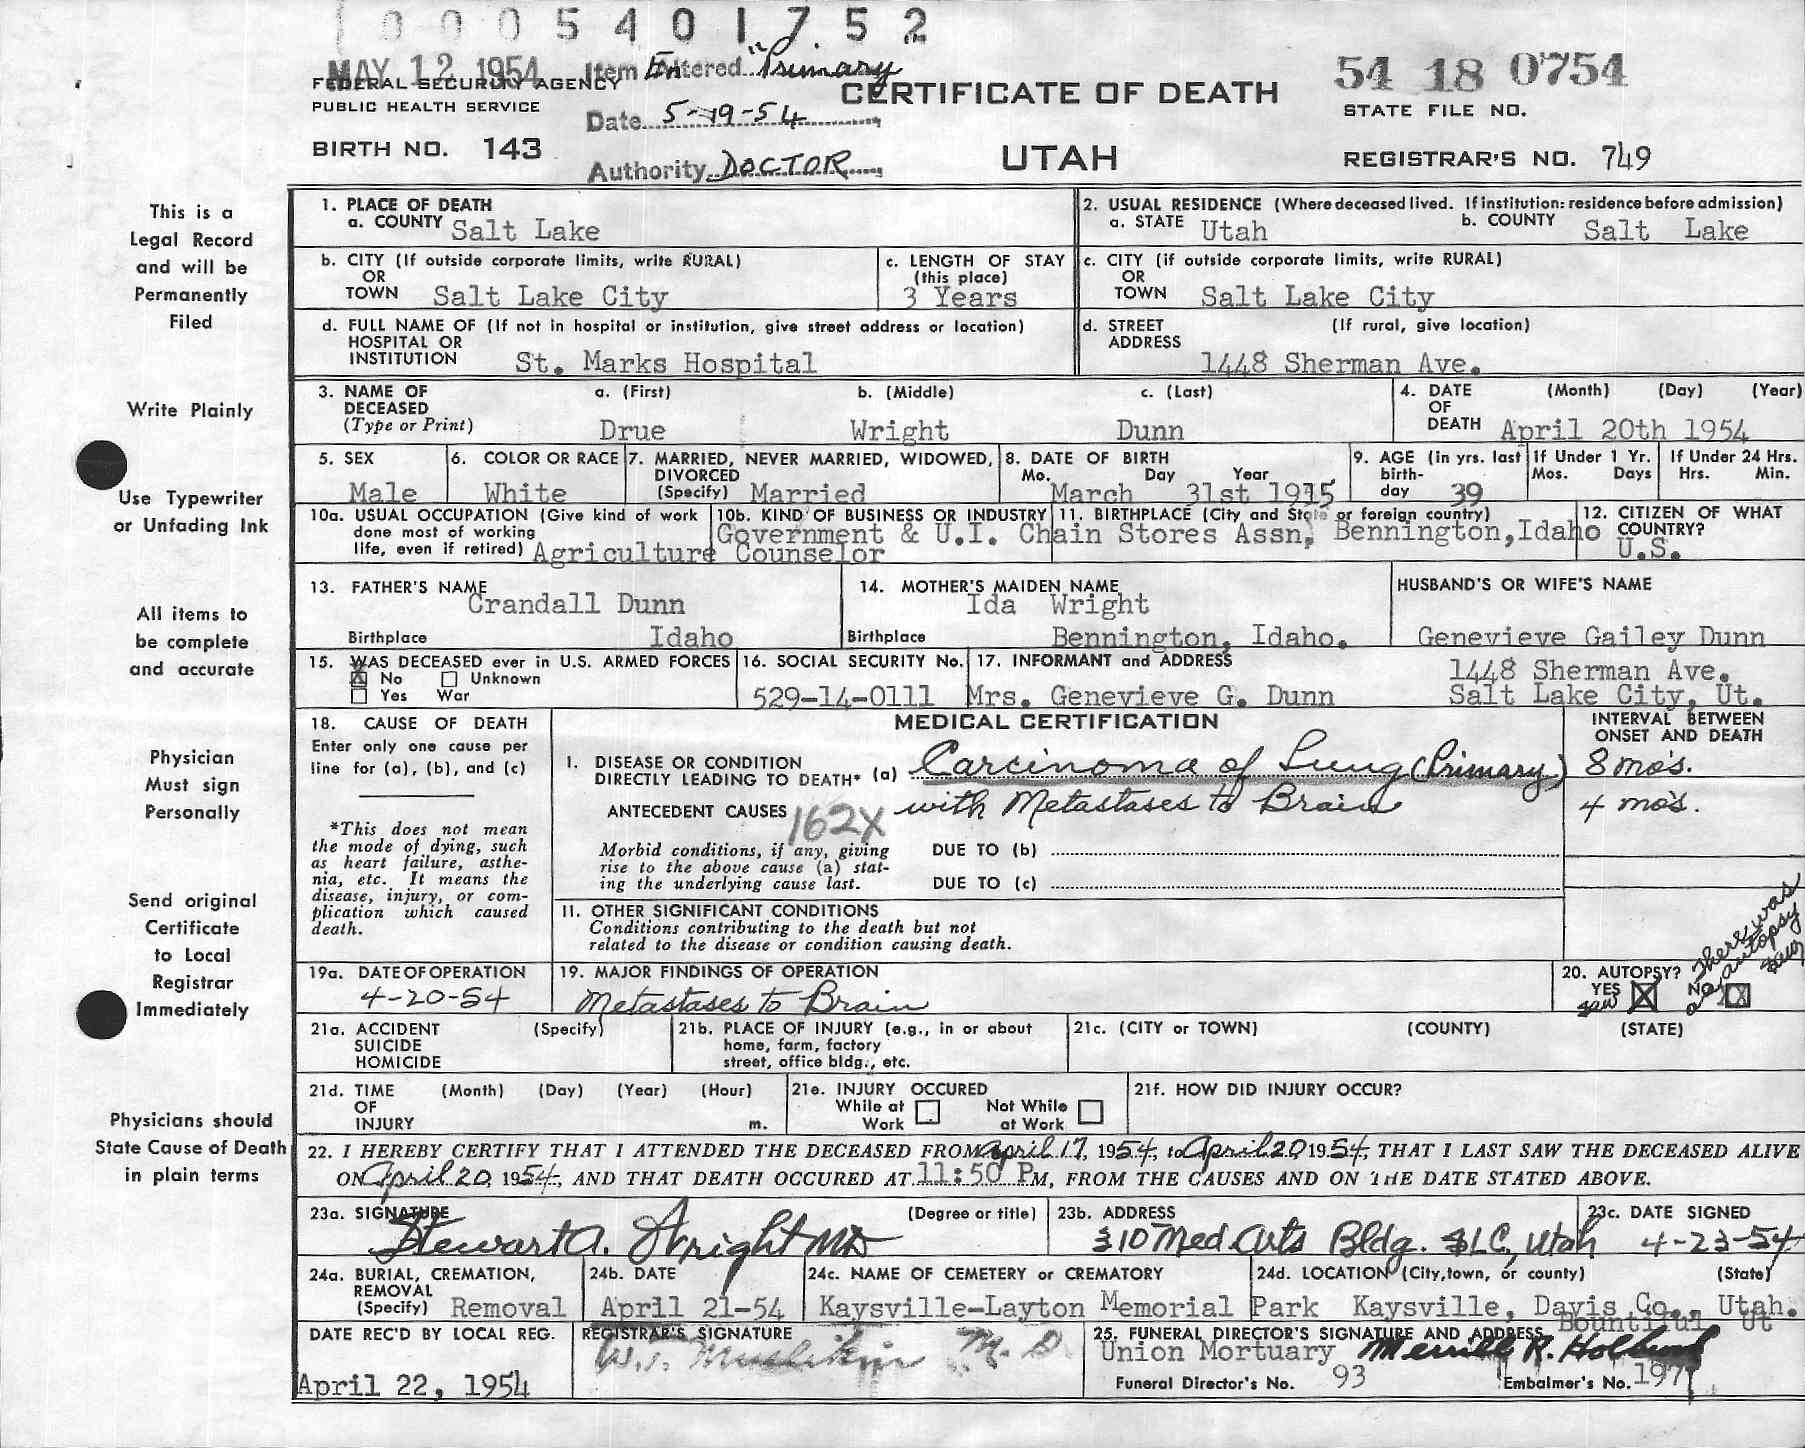 0005401752
MAY 12 1954 Item Entered "Primary
FEDERAL SECURITY AGENCY
PUBLIC HEALTH SERVICE
Date 5-19-54
CERTIFICATE OF DEATH
54 18 0754
STATE FILE NO.
BIRTH NO. 143
Authority DOCTOR
UTAH
REGISTRAR'S NO. 749
This is a
Legal Record
and will be
Permanently
Filed
Write Plainly
Use Typewriter
or Unfading Ink
All items to
be complete
and accurate
Physician
Must sign
Personally
Send original
Certificate
to Local
Registrar
Immediately
Physicians should
State Cause of Death
in plain terms
1. PLACE OF DEATH
a. COUNTY Salt Lake
2. USUAL RESIDENCE (Where deceased lived. If institution: residence before admission)
a. STATE Utah b. COUNTY Salt Lake
b. CITY (If outside corporate limits, write RURAL)
OR
TOWN Salt Lake City
c. LENGTH OF STAY
(this place)
3 Years
c. CITY (if outside corporate limits, write RURAL)
OR
TOWN Salt Lake City
d. FULL NAME OF (If not in hospital or institution, give street address or location)
HOSPITAL OR
INSTITUTION St. Marks Hospital
d. STREET (If rural, give location)
ADDRESS
1448 Sherman Ave.
3. NAME OF a. (First) b. (Middle) c. (Last)
DECEASED
(Type or Print) Drue Wright Dunn
4. DATE (Month) (Day) (Year)
OF
DEATH April 20th 1954
5. SEX
Male
6. COLOR OR RACE
White
7. MARRIED, NEVER MARRIED, WIDOWED,
DIVORCED
(Specify) Married
8. DATE OF BIRTH
Mo. Day Year
March 31st 1915
9. AGE (in yrs. last
birth-
day 39
If Under 1 Yr.
Mos. Days
If Under 24 Hrs.
Hrs. Min.
10a. USUAL OCCUPATION (Give kind of work
done most of working
life, even if retired) Agriculture Counselor
10b. KIND OF BUSINESS OR INDUSTRY
Government & U.I. Chain Stores Assn,
11. BIRTHPLACE (City and State or foreign country)
Bennington, Idaho
12. CITIZEN OF WHAT
COUNTRY?
U.S.
13. FATHER'S NAME
Crandall Dunn
Birthplace Idaho
14. MOTHER'S MAIDEN NAME
Ida Wright
Birthplace Bennington, Idaho.
HUSBAND'S OR WIFE'S NAME
Genevieve Gailey Dunn
15. WAS DECEASED ever in U.S. ARMED FORCES
X No Unknown
Yes War
16. SOCIAL SECURITY No.
529-14-0111
17. INFORMANT and ADDRESS
Mrs. Genevieve G. Dunn
1448 Sherman Ave.
Salt Lake City, Ut.
18. CAUSE OF DEATH
Enter only one cause per
line for (a), (b), and (c)
*This does not mean
the mode of dying, such
as heart failure, asthe-
nia, etc. It means the
disease, injury, or com-
plication which caused
death.
MEDICAL CERTIFICATION
INTERVAL BETWEEN
ONSET AND DEATH
I. DISEASE OR CONDITION
DIRECTLY LEADING TO DEATH* (a) Carcinoma of Lung (Primary) 8 mo's.
ANTECEDENT CAUSES 162X with Metastases to Brain 4 mo's.
Morbid conditions, if any, giving
rise to the above cause (a) stat-
ing the underlying cause last.
DUE TO (b)
DUE TO (c)
11. OTHER SIGNIFICANT CONDITIONS
Conditions contributing to the death but not
related to the disease or condition causing death.
19a. DATE OF OPERATION
4-20-54
19. MAJOR FINDINGS OF OPERATION
Metastases to Brain
20. AUTOPSY?
YES X NO X
There was
an autopsy
saw
21a. ACCIDENT (Specify)
SUICIDE
HOMICIDE
21b. PLACE OF INJURY (e.g., in or about
home, farm, factory
street, office bldg., etc.
21c. (CITY or TOWN) (COUNTY) (STATE)
21d. TIME (Month) (Day) (Year) (Hour)
OF
INJURY m.
21e. INJURY OCCURED
While at Work
Not While at Work
21f. HOW DID INJURY OCCUR?
22. I HEREBY CERTIFY THAT I ATTENDED THE DECEASED FROM April 17, 1954, to April 20 1954, THAT I LAST SAW THE DECEASED ALIVE
ON April 20, 1954, AND THAT DEATH OCCURED AT 11:50 P M, FROM THE CAUSES AND ON THE DATE STATED ABOVE.
23a. SIGNATURE (Degree or title)
Stewart A. Wright MD
23b. ADDRESS
310 Med Arts Bldg. SLC, Utah
23c. DATE SIGNED
4-23-54
24a. BURIAL, CREMATION,
REMOVAL
(Specify) Removal
24b. DATE
April 21-54
24c. NAME OF CEMETERY or CREMATORY
Kaysville-Layton Memorial Park
24d. LOCATION (City, town, or county) (State)
Kaysville, Davis Co., Utah.
DATE REC'D BY LOCAL REG.
April 22, 1954
REGISTRAR'S SIGNATURE
M.D.
25. FUNERAL DIRECTOR'S SIGNATURE AND ADDRESS Bountiful Ut
Union Mortuary Merrill R. Holbrook
Funeral Director's No. 93 Embalmer's No. 197